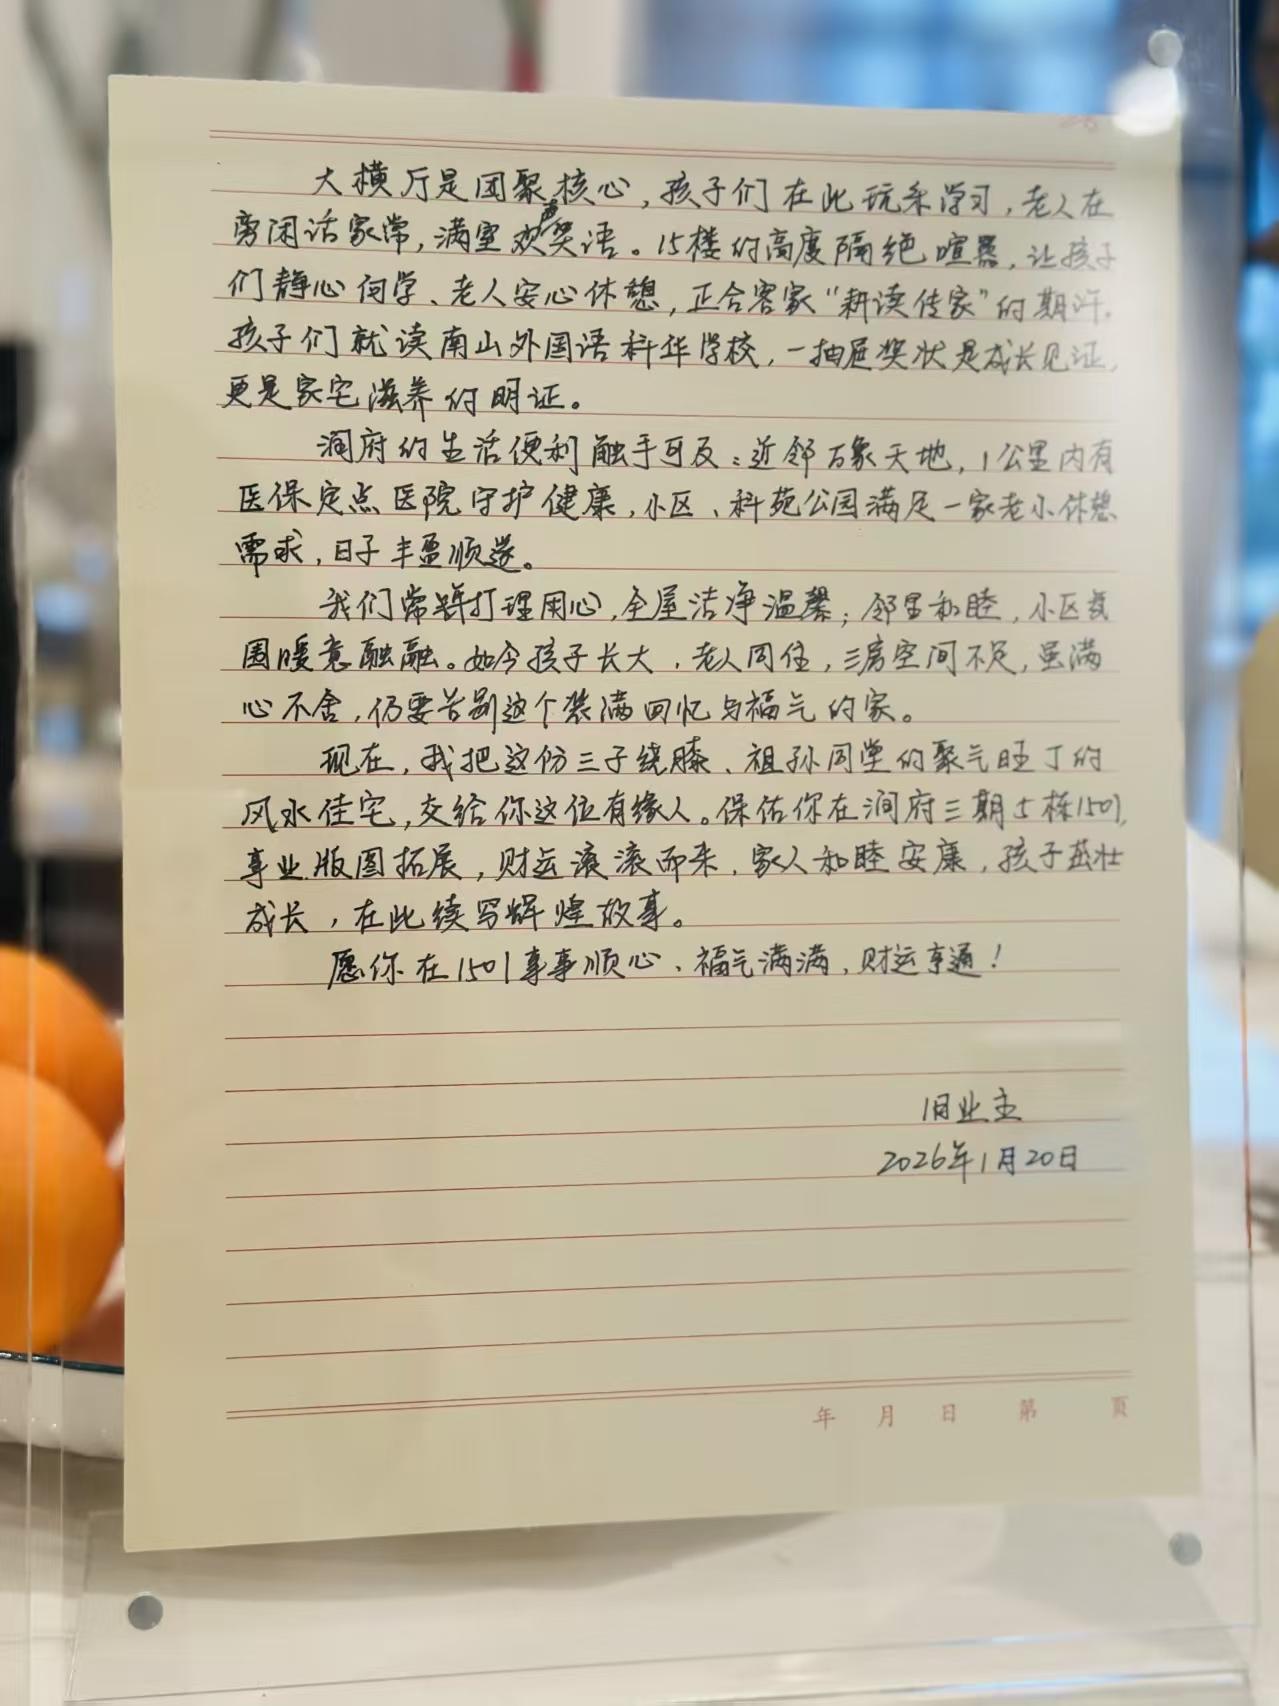 大横厅是团聚核心，孩子们在此玩乐学习，老人在
旁闲话家常，满室欢声笑语。15楼的高度隔绝喧嚣，让孩子
们静心向学、老人安心休憩，正合客家“耕读传家”的期许。
孩子们就读南山外国语科华学校，一抽屉奖状是成长见证，
更是家宅滋养的明证。
润府的生活便利触手可及：近邻万象天地，1公里内有
医保定点医院守护健康，小区、科苑公园满足一家老小休憩
需求，日子丰盈顺遂。
我们常年打理用心，全屋洁净温馨；邻里和睦，小区氛
围暖意融融。如今孩子长大，老人同住，三房空间不足，虽满
心不舍，仍要告别这个装满回忆与福气的家。
现在，我把这份三子绕膝、祖孙同堂的聚气旺丁的
风水住宅，交给你这位有缘人。保佑你在润府三期5栋1501，
事业版图拓展，财运滚滚而来，家人和睦安康，孩子茁壮
成长，在此续写辉煌故事。
愿你在1501事事顺心、福气满满，财运亨通！
旧业主
2026年1月20日
年 月 日 第 頁